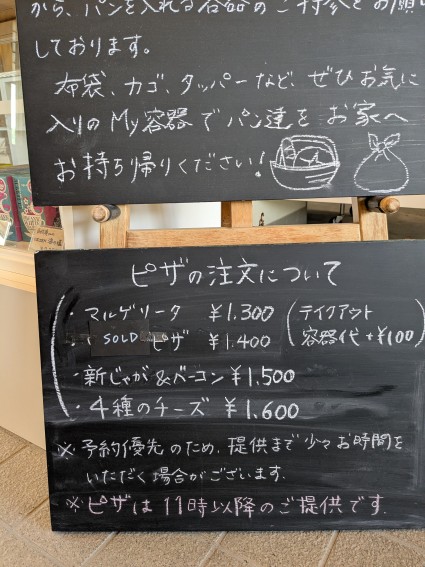 から、パンを入れる容器のご持参をお願い
しております。
布袋、カゴ、タッパーなど、ぜひお気に
入りのMy容器でパン達をお家へ
お持ち帰りください!
ピザの注文について
・マルゲリータ ¥1.300 (テイクアウト
・SOLD ピザ ¥1.400 容器代+¥100)
・新じゃが&ベーコン ¥1.500
・4種のチーズ ¥1.600
※予約優先のため、提供まで少々お時間を
いただく場合がございます.
※ピザは11時以降のご提供です.